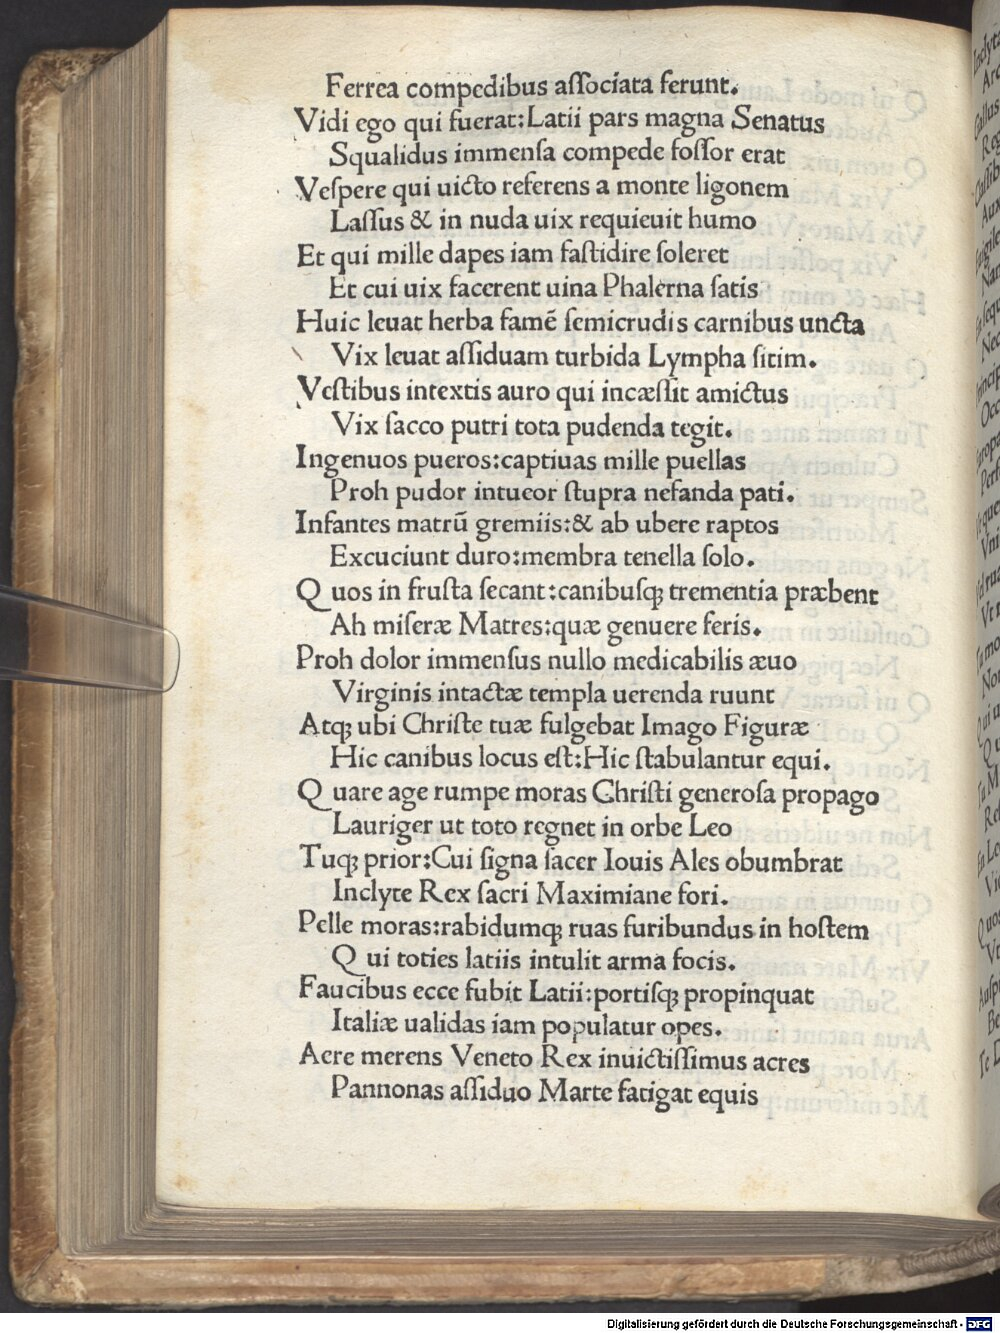 Ferrea compedibus aſſociata ferunt.
Vidi ego qui fuerat:Latii pars magna Senatus
Squalidus immenſa compede foſſor erat
Veſpere qui uicto referens a monte ligonem
Laſſus & in nuda uix requieuit humo
Et qui mille dapes iam faſtidire ſoleret
Et cui uix facerent uina Phalerna ſatis
Huic leuat herba famē ſemicrudis carnibus uncta
Vix leuat aſſiduam turbida Lympha ſitim.
Veſtibus intextis auro qui incæſſit amictus
Vix ſacco putri tota pudenda tegit.
Ingenuos pueros:captiuas mille puellas
Proh pudor intueor ſtupra nefanda pati.
Infantes matrū gremiis:& ab ubere raptos
Excuciunt duro:membra tenella ſolo.
Quos in fruſta ſecant:canibuſqꝫ trementia præbent
Ah miſeræ Matres:quæ genuere feris.
Proh dolor immenſus nullo medicabilis æuo
Virginis intactæ templa uerenda ruunt
Atqꝫ ubi Chriſte tuæ fulgebat Imago Figuræ
Hic canibus locus eſt:Hic ſtabulantur equi.
Quare age rumpe moras Chriſti generoſa propago
Lauriger ut toto regnet in orbe Leo
Tuqꝫ prior:Cui ſigna ſacer Iouis Ales obumbrat
Inclyte Rex ſacri Maximiane fori.
Pelle moras:rabidumqꝫ ruas furibundus in hoſtem
Qui toties latiis intulit arma focis.
Faucibus ecce ſubit Latii:portiſqꝫ propinquat
Italiæ ualidas iam populatur opes.
Aere merens Veneto Rex inuictiſſimus acres
Pannonas aſſiduo Marte fatigat equis
Digitalisierung gefördert durch die Deutsche Forschungsgemeinschaft - DFG